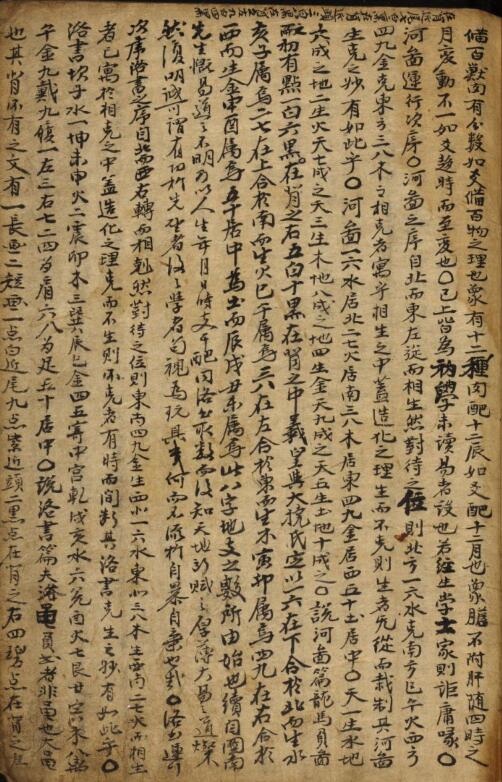 備百獸肉有分數如爻備百物之理也象有十二種肉配十二辰如爻配十二月也象膽不附肝隨四時之
月変動不一如爻趍時而至変也〇已上皆為初學未讀易者設也若經生学士家則詎庸喙〇
河啚運行次序〇河啚之序自北而東左旋而相生然對待之位則北方一六水克南方二七火西方
四九金克東方三八木而相克者寓乎相生之中蓋造化之理生而不克則生者无從而裁制其河啚
生克之妙有如此乎〇河啚一六水居北二七火居南三八木居東四九金居西五十土居中〇天一生水地
六成之地二生火天七成之天三生木地八成之地四生金天九成之天五生土地十成之〇説河啚篇龍馬負啚
初有點一白六黑在背之右五白十黑在背之中羲皇與大撓氏定以一六在下合於北而生水
亥子属焉二七在上合於南而生火巳午属焉三八在左合於東而生木寅卯属焉四九在右合於
西而生金申酉属焉五十居中為土而辰戌丑未属焉此八字地支之數所由始也續因閩南
先生慨易道之不明乃以人生年月日時支干配因洛出取數而後知天地所賦之厚薄大易之道燦
然復明誠可謂有功於先聖者後之學者苟視為玩具夫何而不於自暴自棄也哉〇洛書運行
次序洛書之序自北而西右轉而相剋然對待之位則東南四九金生西北一六水東北三八木生西南二七火而相生
者已寓於相克之中蓋造化之理克而不生則不克者有時而間断其洛書克生之妙有如此乎〇
洛書坎子水一坤未申火二震卯木三巽辰巳金四五寄中宮乾戌亥水六兊酉火七艮丑寅木八离
午金九戴九履一左三右七二四為肩六八為足五十居中〇說洛書篇夫洛龜負書者非龜也大龜
也其背所有之文有一長画二短画一点白近尾九点紫近頭二黑点在背之右四碧点在背之左